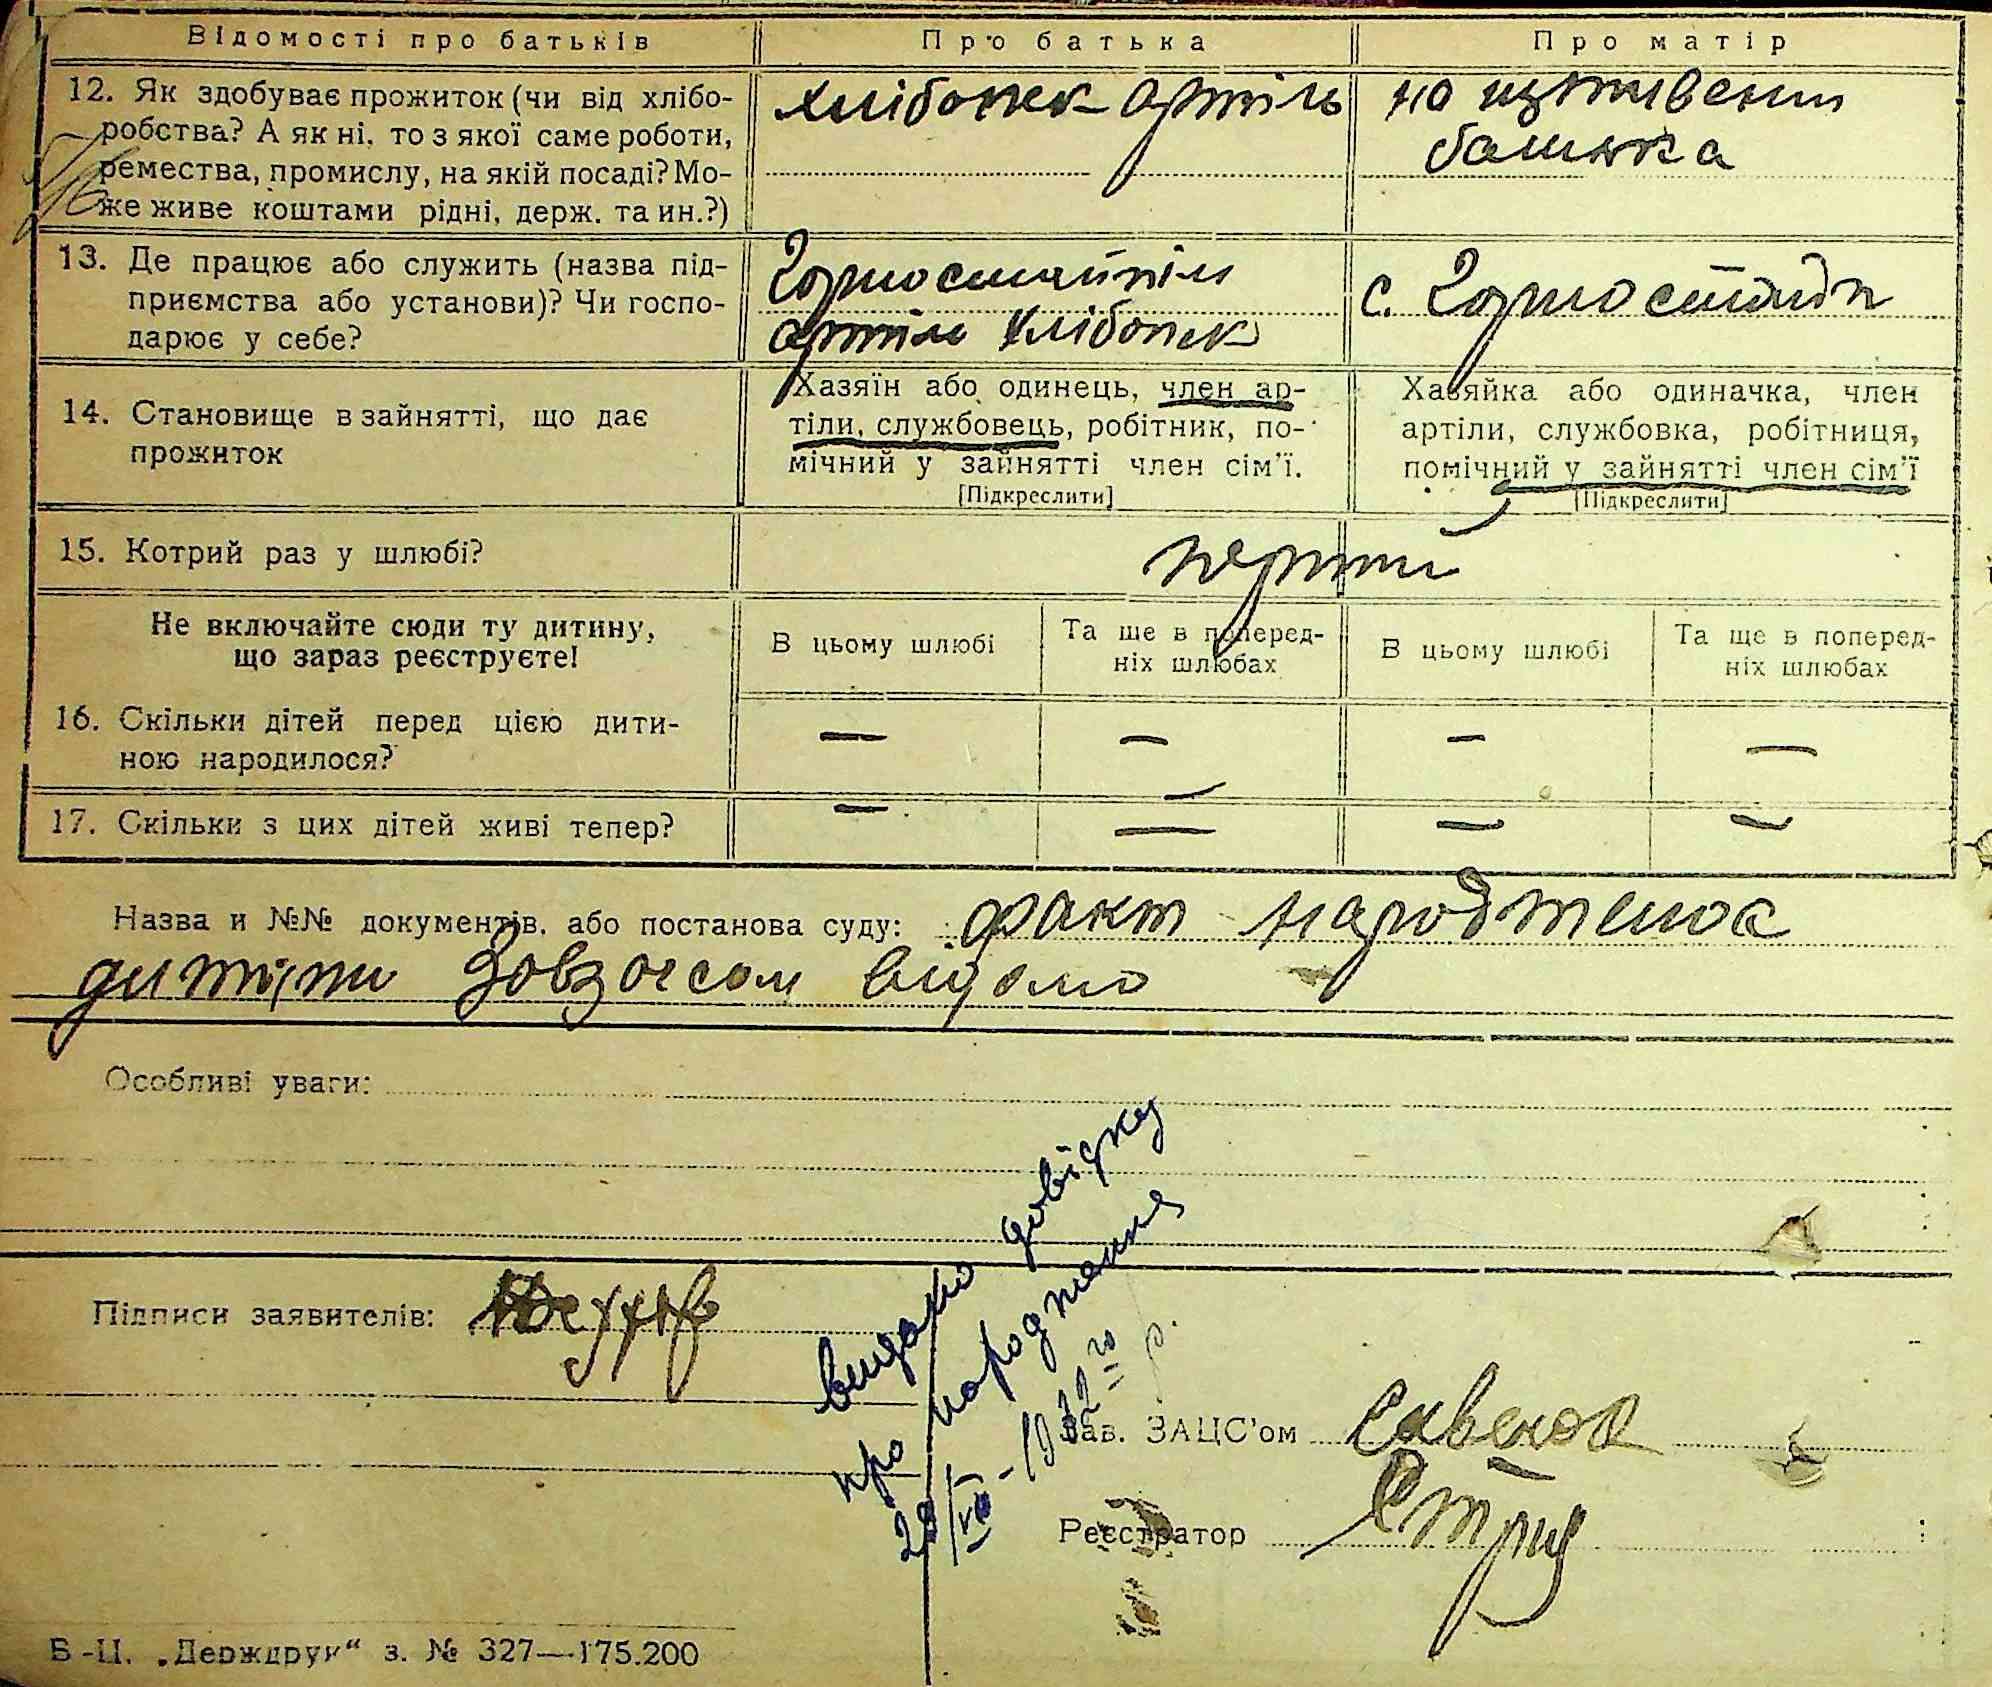 Відомості про батьків
Про батька
Про матір
12. Як здобуває прожиток (чи від хлібо-
робства? А як ні, то з якої саме роботи,
ремества, промислу, на якій посаді? Мо-
же живе коштами рідні, держ. та ин.?)
хлібопек артіль
на
батька
13. Де працює або служить (назва під-
приємства або установи)? Чи госпо-
дарює у себе?
артіль хлібопек
с.
14. Становище в зайнятті, що дає
прожиток
Хазяїн або одинець, член ар-
тіли, службовець, робітник, по-
мічний у зайнятті член сім'ї.
[Підкреслити]
Хазяйка або одиначка, член
артіли, службовка, робітниця,
помічний у зайнятті член сім'ї
[Підкреслити]
15. Котрий раз у шлюбі?
перший
Не включайте сюди ту дитину,
що зараз реєструєте!
В цьому шлюбі
Та ще в поперед-
ніх шлюбах
В цьому шлюбі
Та ще в поперед-
ніх шлюбах
16. Скільки дітей перед цією дити-
ною народилося?
— — — —
17. Скільки з цих дітей живі тепер?
— — — —
Назва и №№ документів, або постанова суду: факт
відомо
Особливі уваги:
видано довідку
про народження
1932 р.
Підписи заявителів:
Зав. ЗАЦС'ом
Реєстратор
Б-Ц. „Держдрук“ з. № 327—175.200